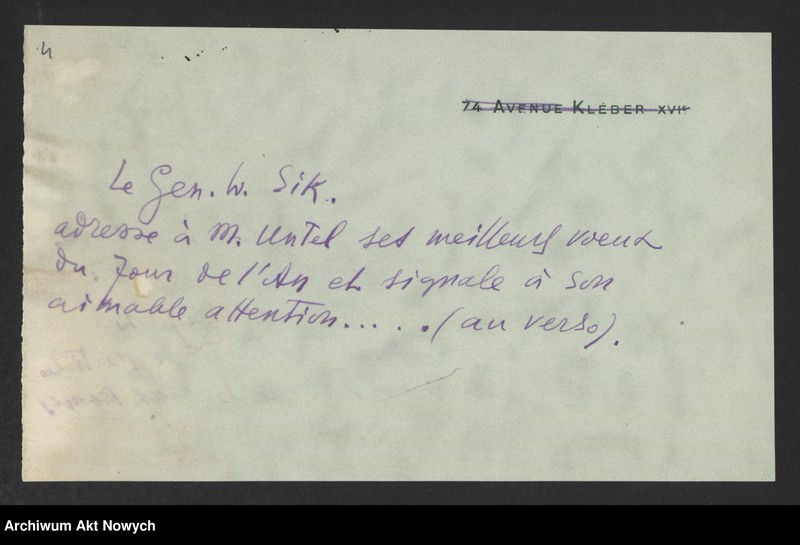 4
74 AVENUE KLÉBER XVIᵉ
Le Gen. W. Sik.
adresse à M. Untel ses meilleurs voeux
du Jour de l'An et signale à son
aimable attention..... (au verso).
Archiwum Akt Nowych